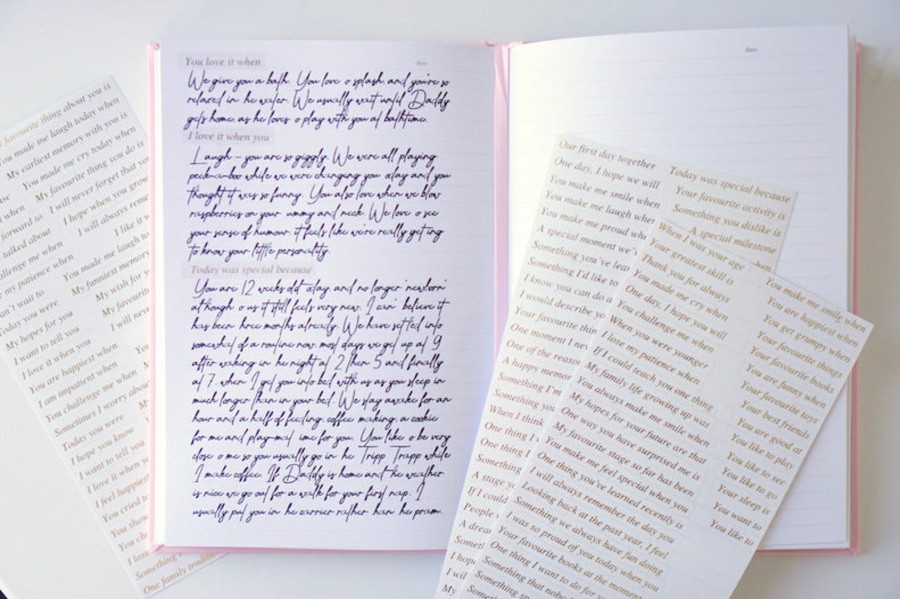 You love it when
date
We give you a bath. You love to splash and you're so
relaxed in the water. We usually wait until Daddy
gets home as he loves to play with you at bathtime.
I love it when you
Laugh - you are so giggly. We were all playing
peek-a-boo while we were changing you today and you
thought it was so funny. You also love when we blow
raspberries on your tummy and neck. We love to see
your sense of humour, it feels like we're really getting
to know your little personality.
Today was special because
You are 12 weeks old today and no longer 'newborn'
although to us it still feels very new. I can't believe it
has been three months already. We have settled into
somewhat of a routine now: most days we get up at 9
after waking in the night at 2 then 5 and finally
at 7 when I get you into bed with us as you sleep in
much longer than in your bed. We stay awake for an
hour and a half of feeding, coffee making, a cookie
for me and play-mat time for you. You like to be very
close to me so you usually go in the Tripp Trapp while
I make coffee. If Daddy is home and the weather
is nice we go out for a walk for your first nap. I
usually put you in the carrier rather than the pram.
date
favourite thing about you is
You made me laugh today when
My earliest memory with you is
You made me cry today when
My favourite thing you do is
I will never forget that
I hope when you grow
I will always remember
I like it
talked about
You made me laugh
my patience when
My funniest memory
My wish for
Today you were
My favourite
My hopes for you
I will never
I want to tell you
I love it when you
You are happiest when
I am impatient when
You challenge me when
Sometimes I worry about
Today you were
I hope you know
I want to tell you
I love it when
I feel happiest
You cried
One family tradition
Our first day together
One day, I hope we will
You make me smile when
You make me laugh when
You make me proud when
A special moment we
Something you've
Something I'd like to
I know you can do
I would describe
Your favourite thing
One moment I
One of the reasons
A happy memory
Something
When I think
One thing
Something
A stage
If I could
People
A dream
Something
I hope
I will
My
Today was special because
Your favourite activity is
Something you dislike is
A special milestone
When I was your age
Your greatest skill is
Thank you for always
You made me cry when
One day, I hope you will
You challenge me when
When you were younger
I lose my patience when
If I could teach you one thing
My family life growing up was
You always make me smile when
My hopes for your future are that
One way you have surprised me is
My favourite stage so far has been
You make me feel special when you
One thing you've learned recently is
I will always remember the day you
Looking back at the past year, I feel
Something we always have fun doing
I was so proud of you today when you
Your favourite books at the moment
One thing I want to do for
Something that
Something
You make me smile when
You are happiest when
You get grumpy when
Your favourite things
Your favourite books
You are funny when
Your favourite toys
Your best friends
You are good at
You like to play
You like to see
You like to go
Your sleep is
You want to
You like to